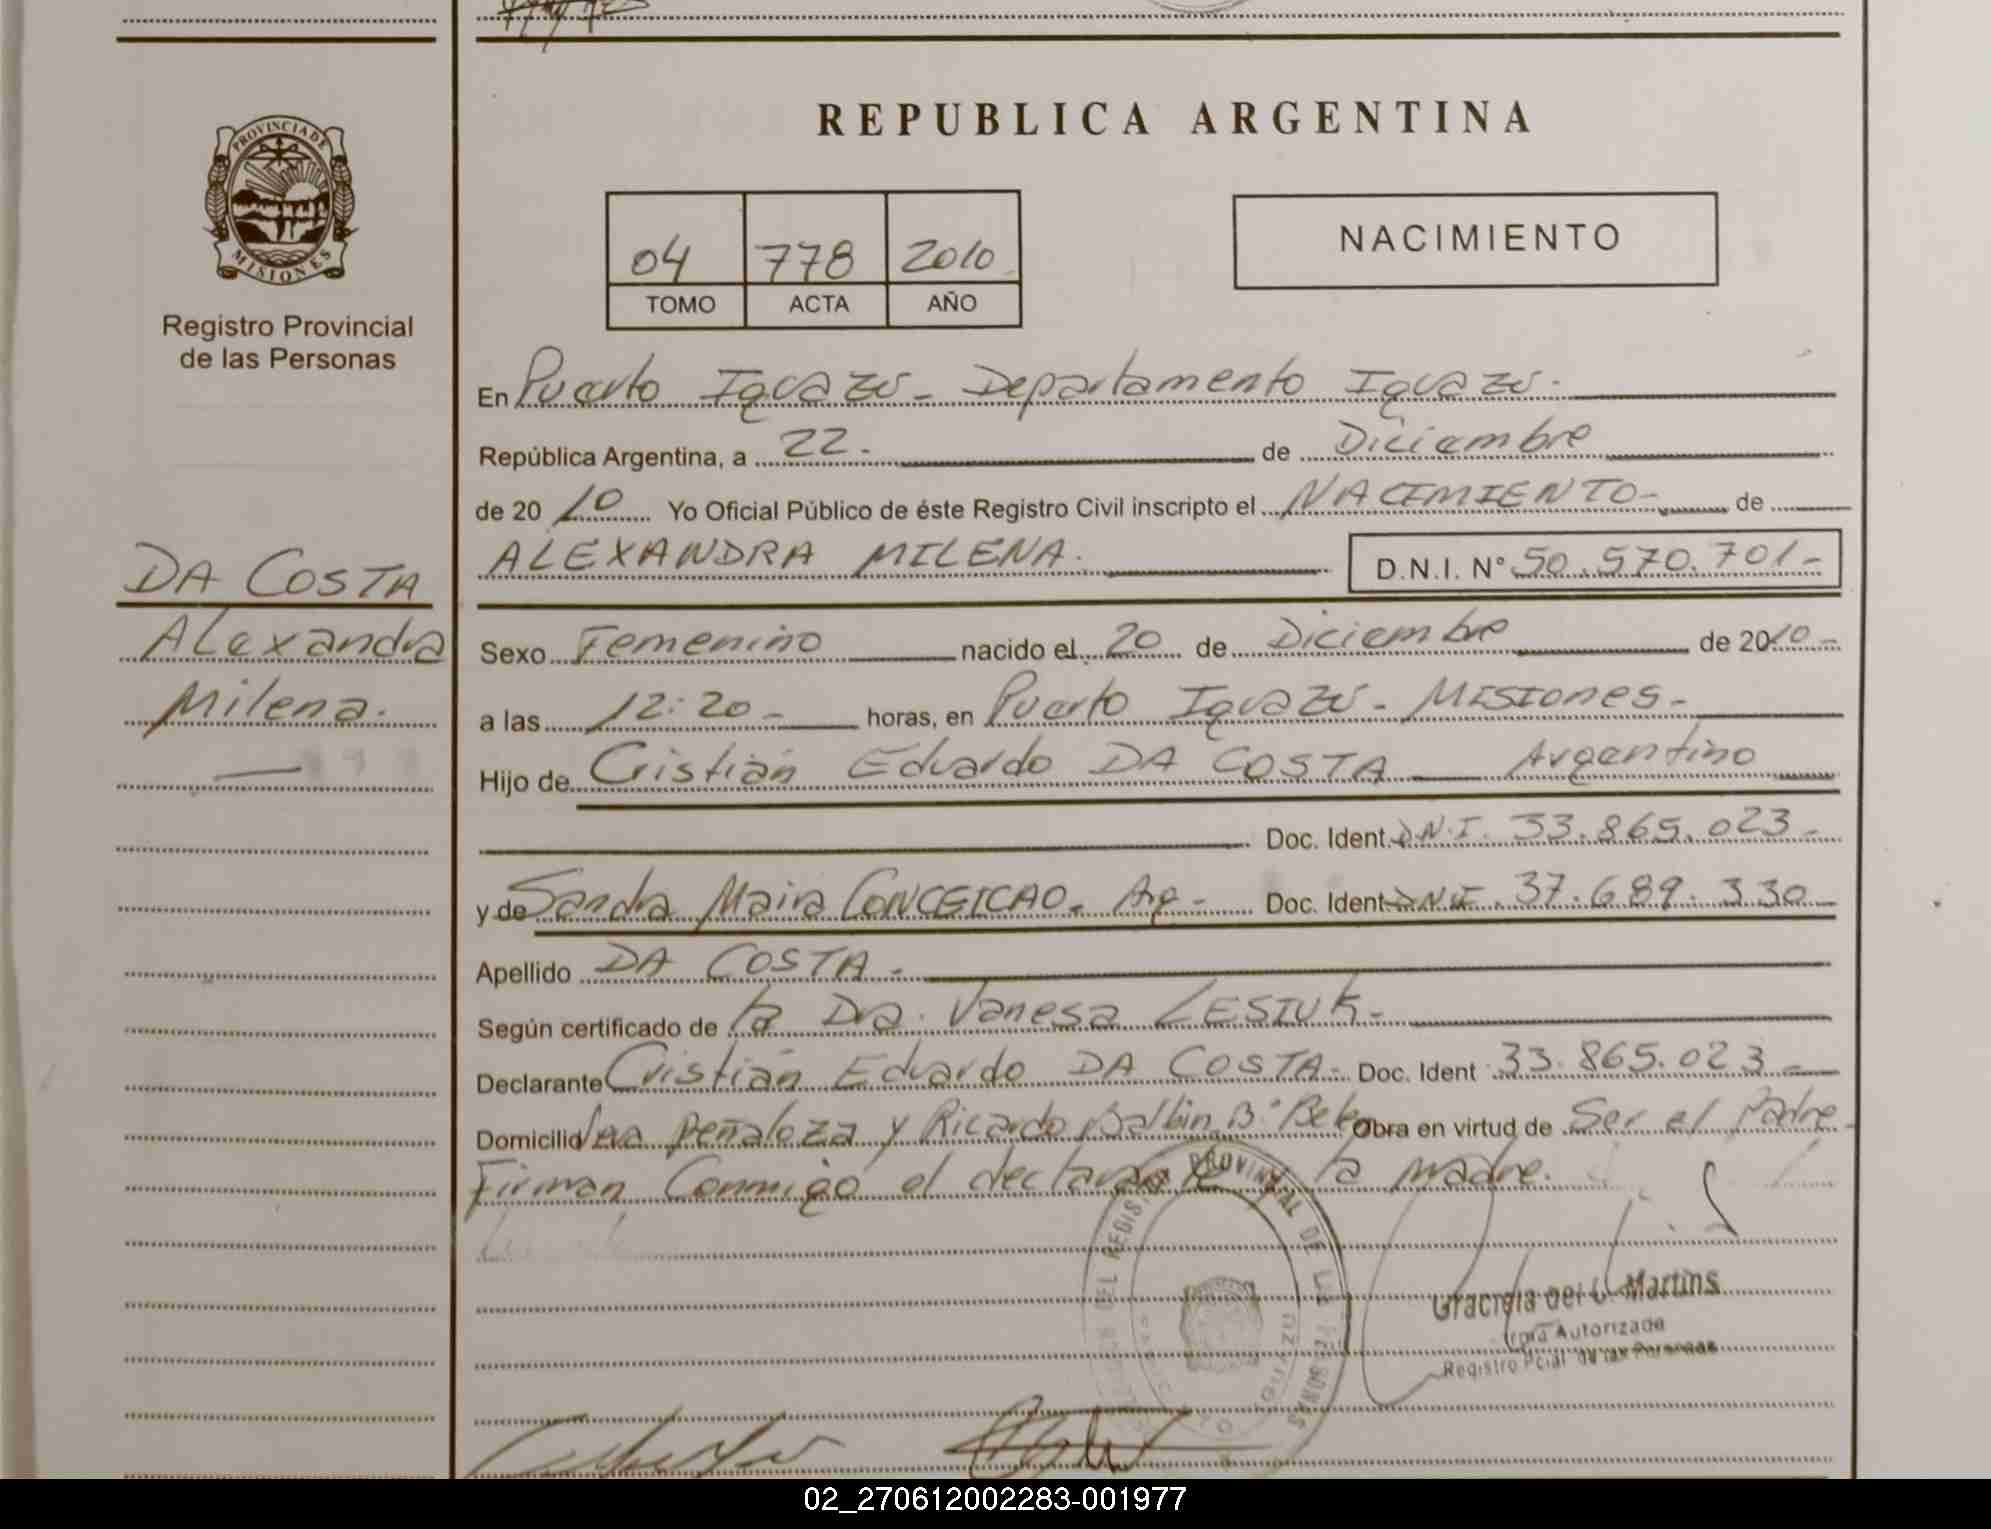 REPUBLICA ARGENTINA
PROVINCIA DE
MISIONES
Registro Provincial
de las Personas
04 778 2010
TOMO ACTA AÑO
NACIMIENTO
En Puerto Iguazú - Departamento Iguazú -
República Argentina, a 22 - de Diciembre
de 20 10 Yo Oficial Público de éste Registro Civil inscripto el NACIMIENTO - de
ALEXANDRA MILENA. D.N.I. N° 50.570.701-
DA COSTA
Alexandra
Milena.
Sexo Femenino nacido el 20 de Diciembre de 2010-
a las 12:20 - horas, en Puerto Iguazú - Misiones -
Hijo de Cristián Eduardo DA COSTA Argentino
Doc. Ident. D.N.I. 33.865.023-
y de Sandra Maira CONCEICAO. Arg - Doc. Ident. D.N.I. 37.689.330-
Apellido DA COSTA -
Según certificado de la Dra. Vanesa LESIUK -
Declarante Cristián Eduardo DA COSTA - Doc. Ident 33.865.023-
Domicilio Peñaloza y Ricardo Balbin B° Obra en virtud de Ser el Padre -
Firman Conmigo el declarante la madre.
REGISTRO PROVINCIAL DE LAS PERSONAS
Graciela del C. Martins
Firma Autorizada
Registro Pcial de las Personas
02_270612002283-001977